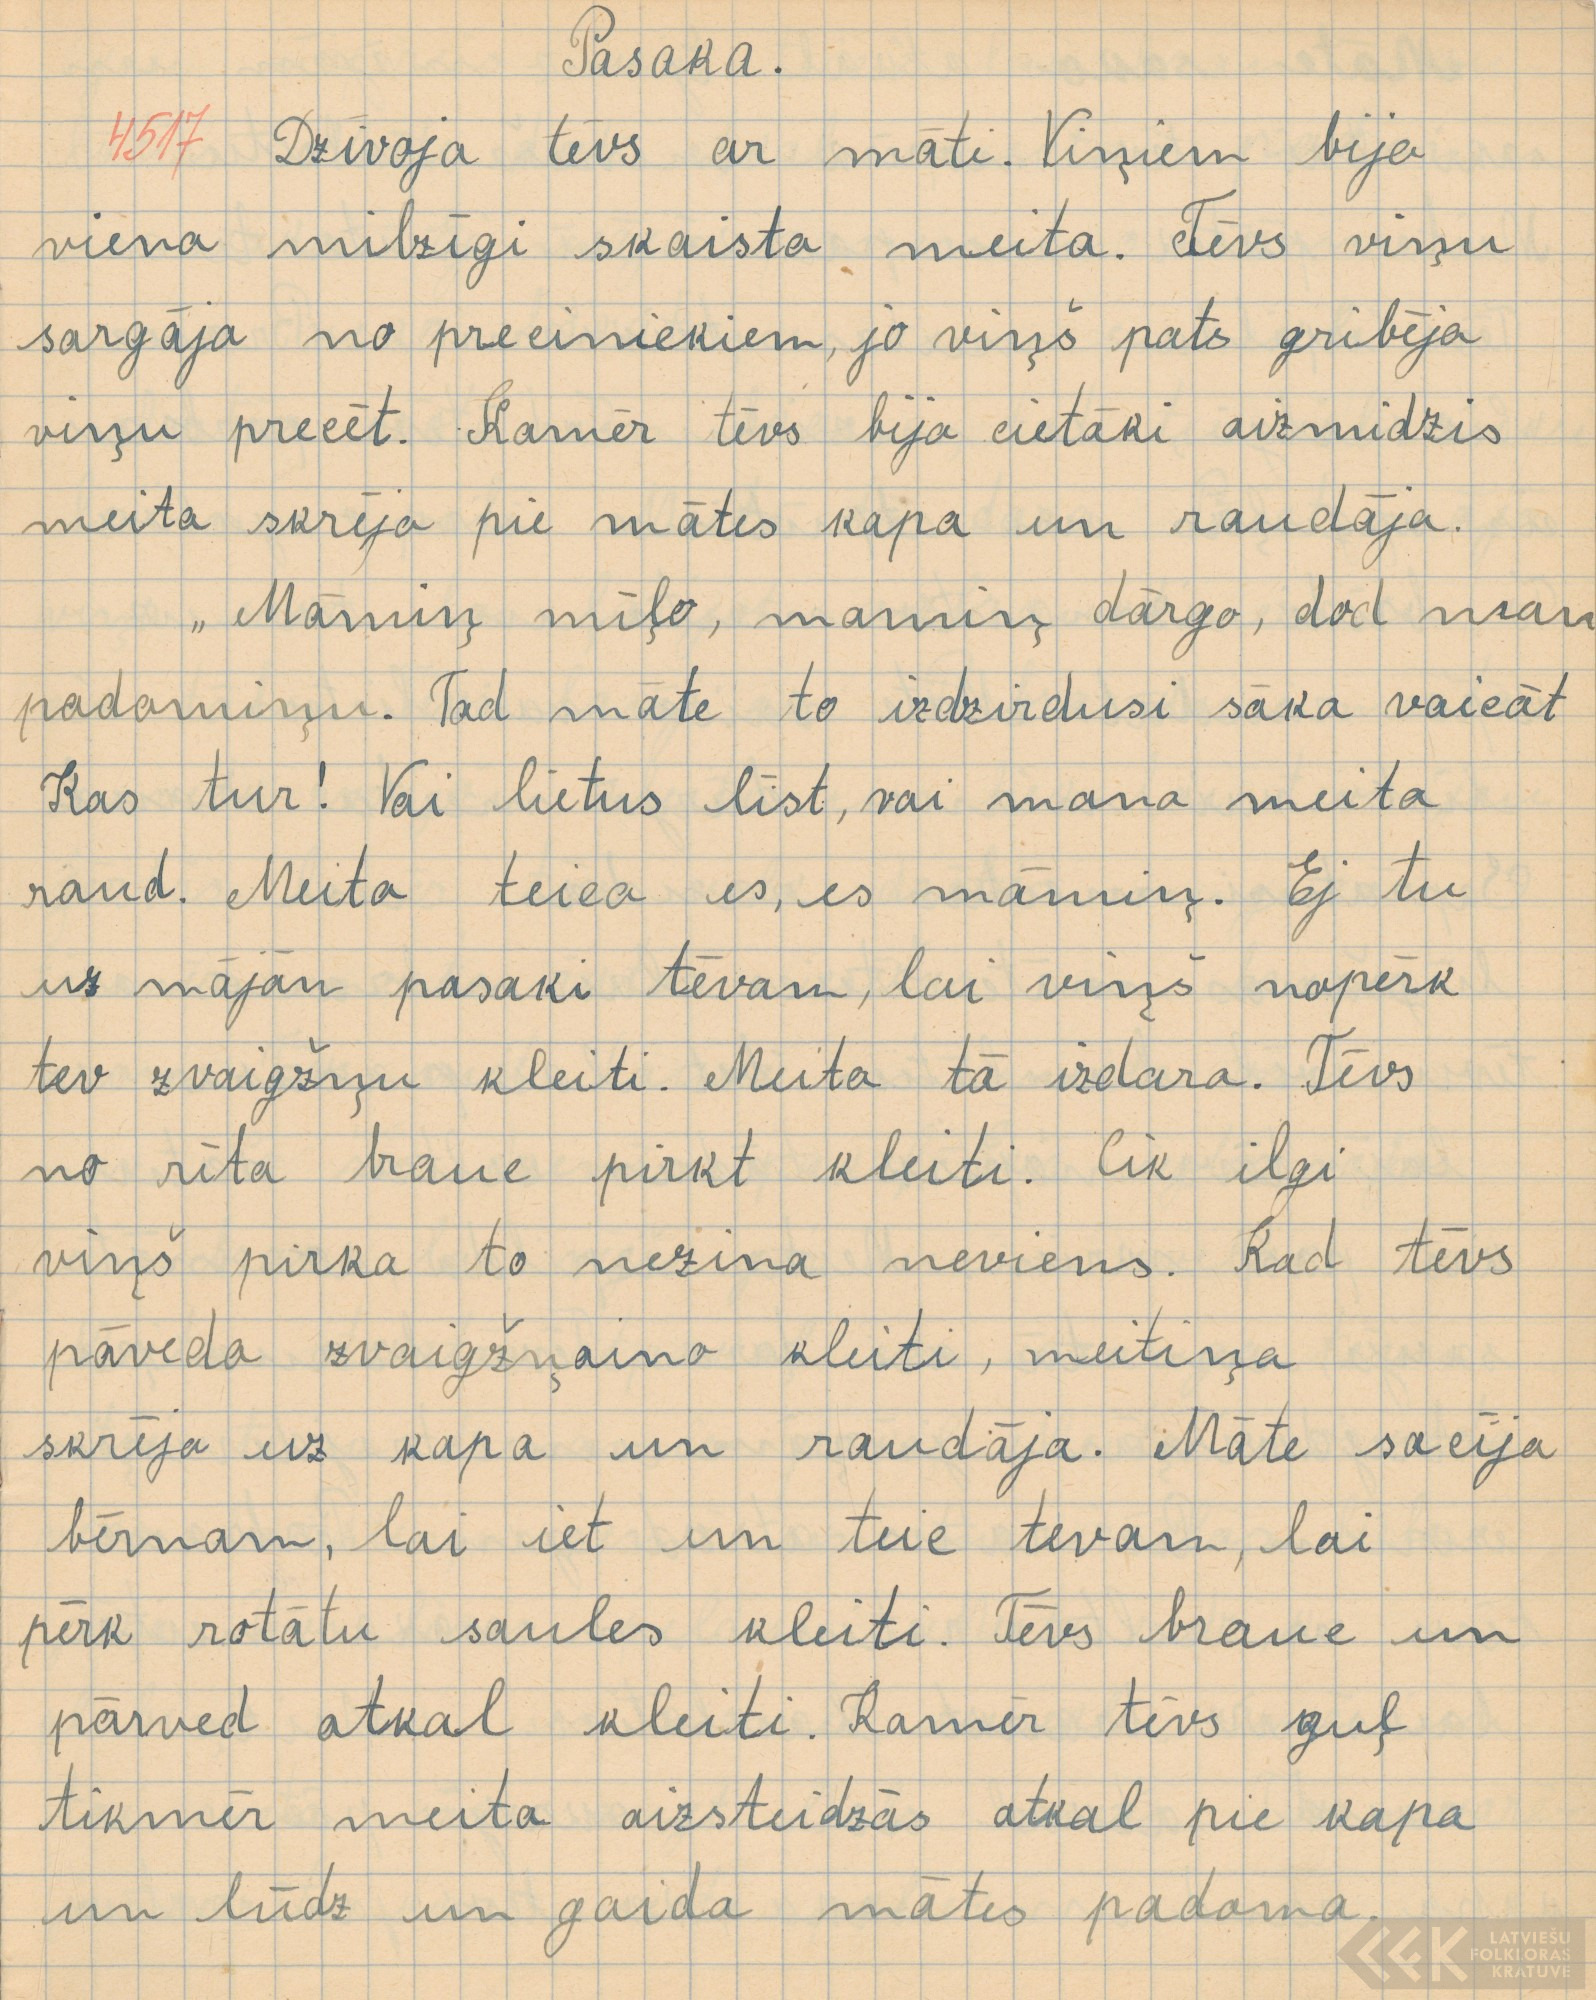 Pasaka.
4517 Dzīvoja tēvs ar māti. Viņiem bija
viena milzīgi skaista meita. Tēvs viņu
sargāja no preciniekiem, jo viņš pats gribēja
viņu precēt. Kamēr tēvs bija cietāki aizmidzis
meita skrēja pie mātes kapa un raudāja.
„Māmiņ mīļo, mamiņ dārgo, dod man
padomiņu. Tad māte to izdzirdusi sāka vaicāt
Kas tur! Vai lietus līst, vai mana meita
raud. Meita teica es, es māmiņ. Ej tu
uz mājān pasaki tēvam, lai viņš nopērk
tev zvaigžņu kleiti. Meita tā izdara. Tēvs
no rīta brauc pirkt kleiti. Cik ilgi
viņš pirka to nezina neviens. Kad tēvs
pāveda zvaigžņaino kleiti, meitiņa
skrēja uz kapa un raudāja. Māte sacīja
bērnam, lai iet un teic tevam, lai
pērk rotātu saules kleiti. Tēvs brauc un
pārved atkal kleiti. Kamēr tēvs guļ
tikmēr meita aizsteidzās atkal pie kapa
un lūdz un gaida mātes padoma.
LATVIEŠU
FOLKLORAS
KRĀTUVE